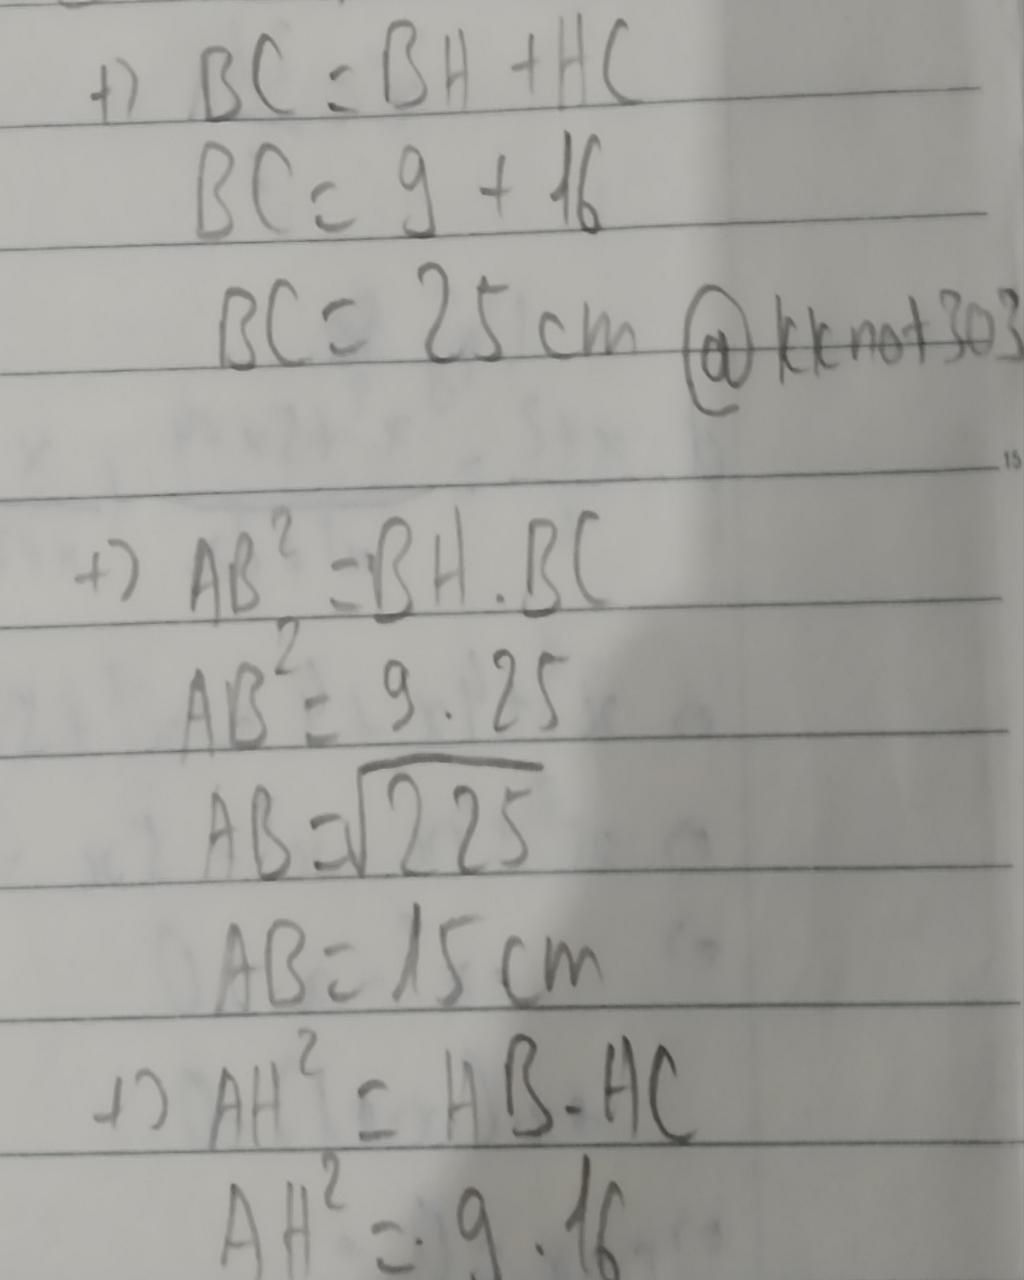 +) BC = BH + HC
BC = 9 + 16
BC = 25 cm @kknot303
15
+) AB² = BH . BC
AB² = 9 . 25
AB = √225
AB = 15 cm
+) AH² = HB . HC
AH² = 9 . 16